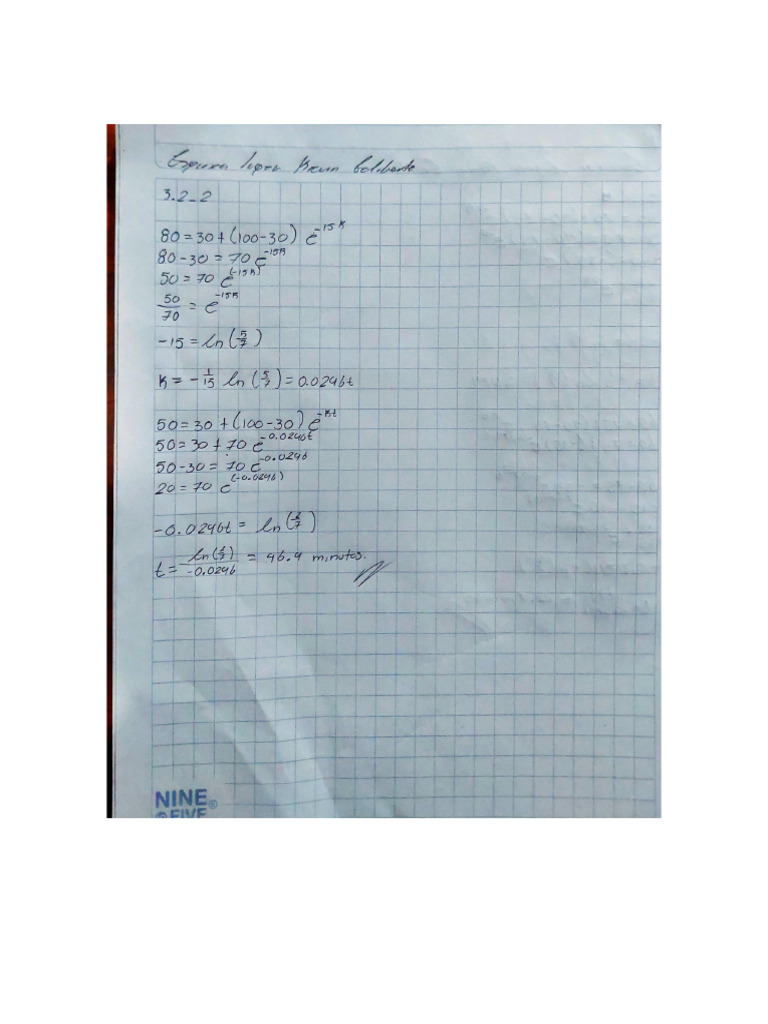 Kevin
3.2_2
80 = 30 + (100 - 30) e^-15K
80 - 30 = 70 e^-15K
50 = 70 e^(-15K)
50/70 = e^-15K
-15 = ln(5/7)
K = -1/15 ln(5/7) = 0.0246t
50 = 30 + (100 - 30) e^-Kt
50 = 30 + 70 e^-0.0246t
50 - 30 = 70 e^-0.0246
20 = 70 e^(-0.0246)
-0.0246t = ln(2/7)
t = ln(2/7)/-0.0246 = 46.4 minutos.
NINE
FIVE®